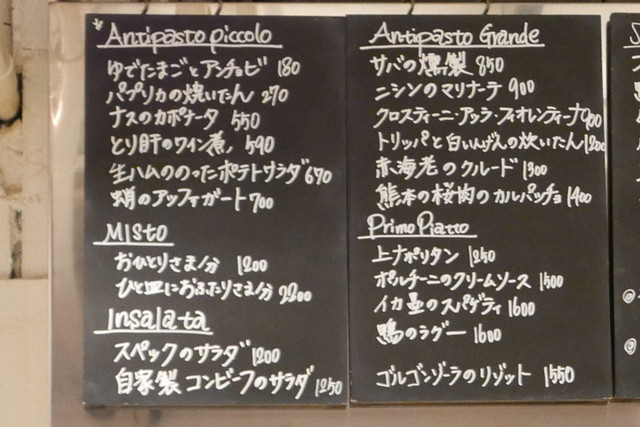 *Antipasto piccolo
ゆでたまごとアンチョビ 180
パプリカの焼いたん 270
ナスのカポナータ 550
とり肝のワイン煮 590
生ハムののったポテトサラダ 690
蛸のアッフォガート 700
Misto
おひとりさま分 1200
ひと皿におふたりさま分 2200
Insalata
スペックのサラダ 1200
自家製コンビーフのサラダ 1250
Antipasto Grande
サバの燻製 850
ニシンのマリナーテ 900
クロスティーニ・アッラ・フィオレンティーナ 900
トリッパと白いんげんの炊いたん 1200
赤海老のクルード 1300
熊本の桜肉のカルパッチョ 1400
Primo Piatto
上ナポリタン 1250
ポルチーニのクリームソース 1500
イカ墨のスパゲティ 1600
鴨のラグー 1600
ゴルゴンゾーラのリゾット 1550